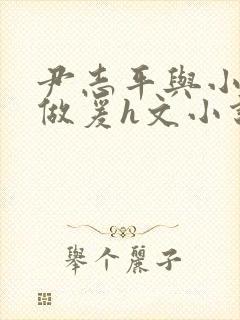 尹志平與小
做爰h文小
舉个麗子